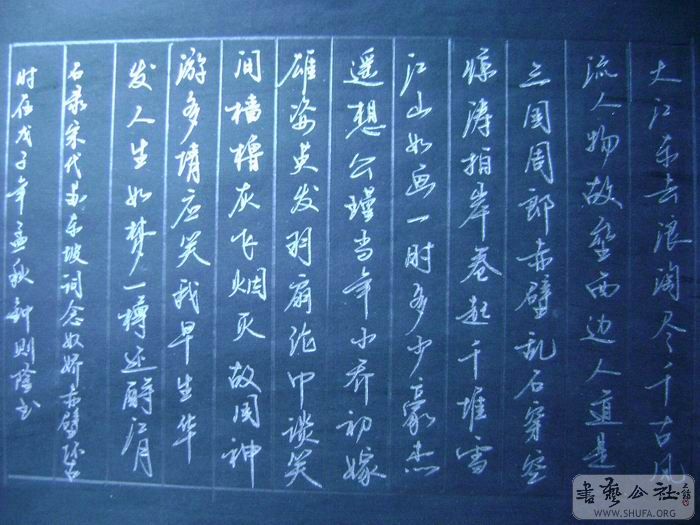 大江东去浪淘尽千古风
流人物故垒西边人道是
三国周郎赤壁乱石穿空
惊涛拍岸卷起千堆雪
江山如画一时多少豪杰
遥想公瑾当年小乔初嫁
雄姿英发羽扇纶巾谈笑
间樯橹灰飞烟灭故国神
游多情应笑我早生华
发人生如梦一樽还酹江月
右录宋代苏东坡词念奴娇赤壁怀古
时在戊子年孟秋钟则隆书
書藝公社
WWW.SHUFA.ORG